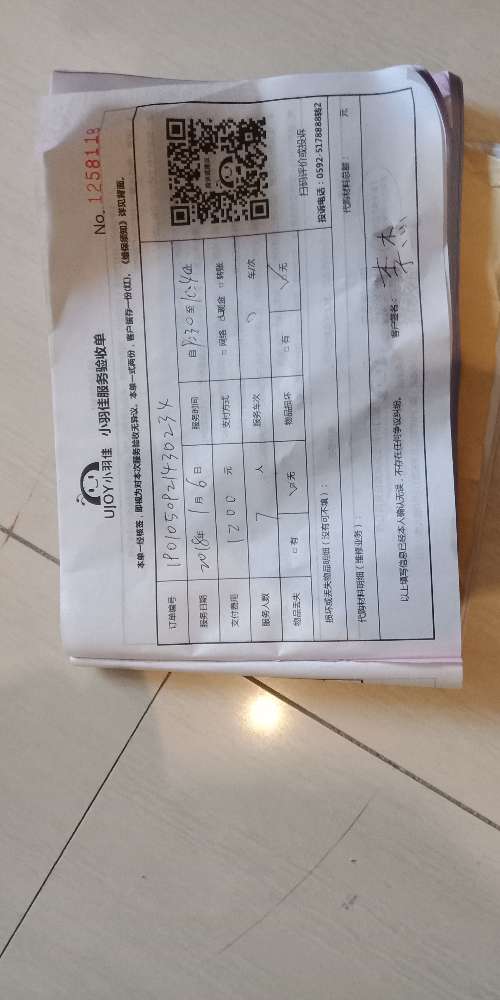 UJOY小羽佳 小羽佳服务验收单
No. 1258118
本单一经核签，即视为对本次服务验收无异议。本单一式两份，客户留存一份(红)，《维保须知》详见背面。
订单编号
服务日期 2018年 1月 6日 服务时间 自 8:30 至
支付费用 1200 元 支付方式 □ 网络 现金 □ 转账
服务人数 7 人 服务车次 车/次
物品丢失 □ 有 √ 无 物品损坏 □ 有 √ 无
扫码评价或投诉
投诉电话：0592-5178888转2
损坏或丢失物品明细（没有可不填）：
代购材料明细（维修业务）： 代购材料总额： 元
以上填写信息已经本人确认无误，不存在任何争议纠纷。
客户签名：